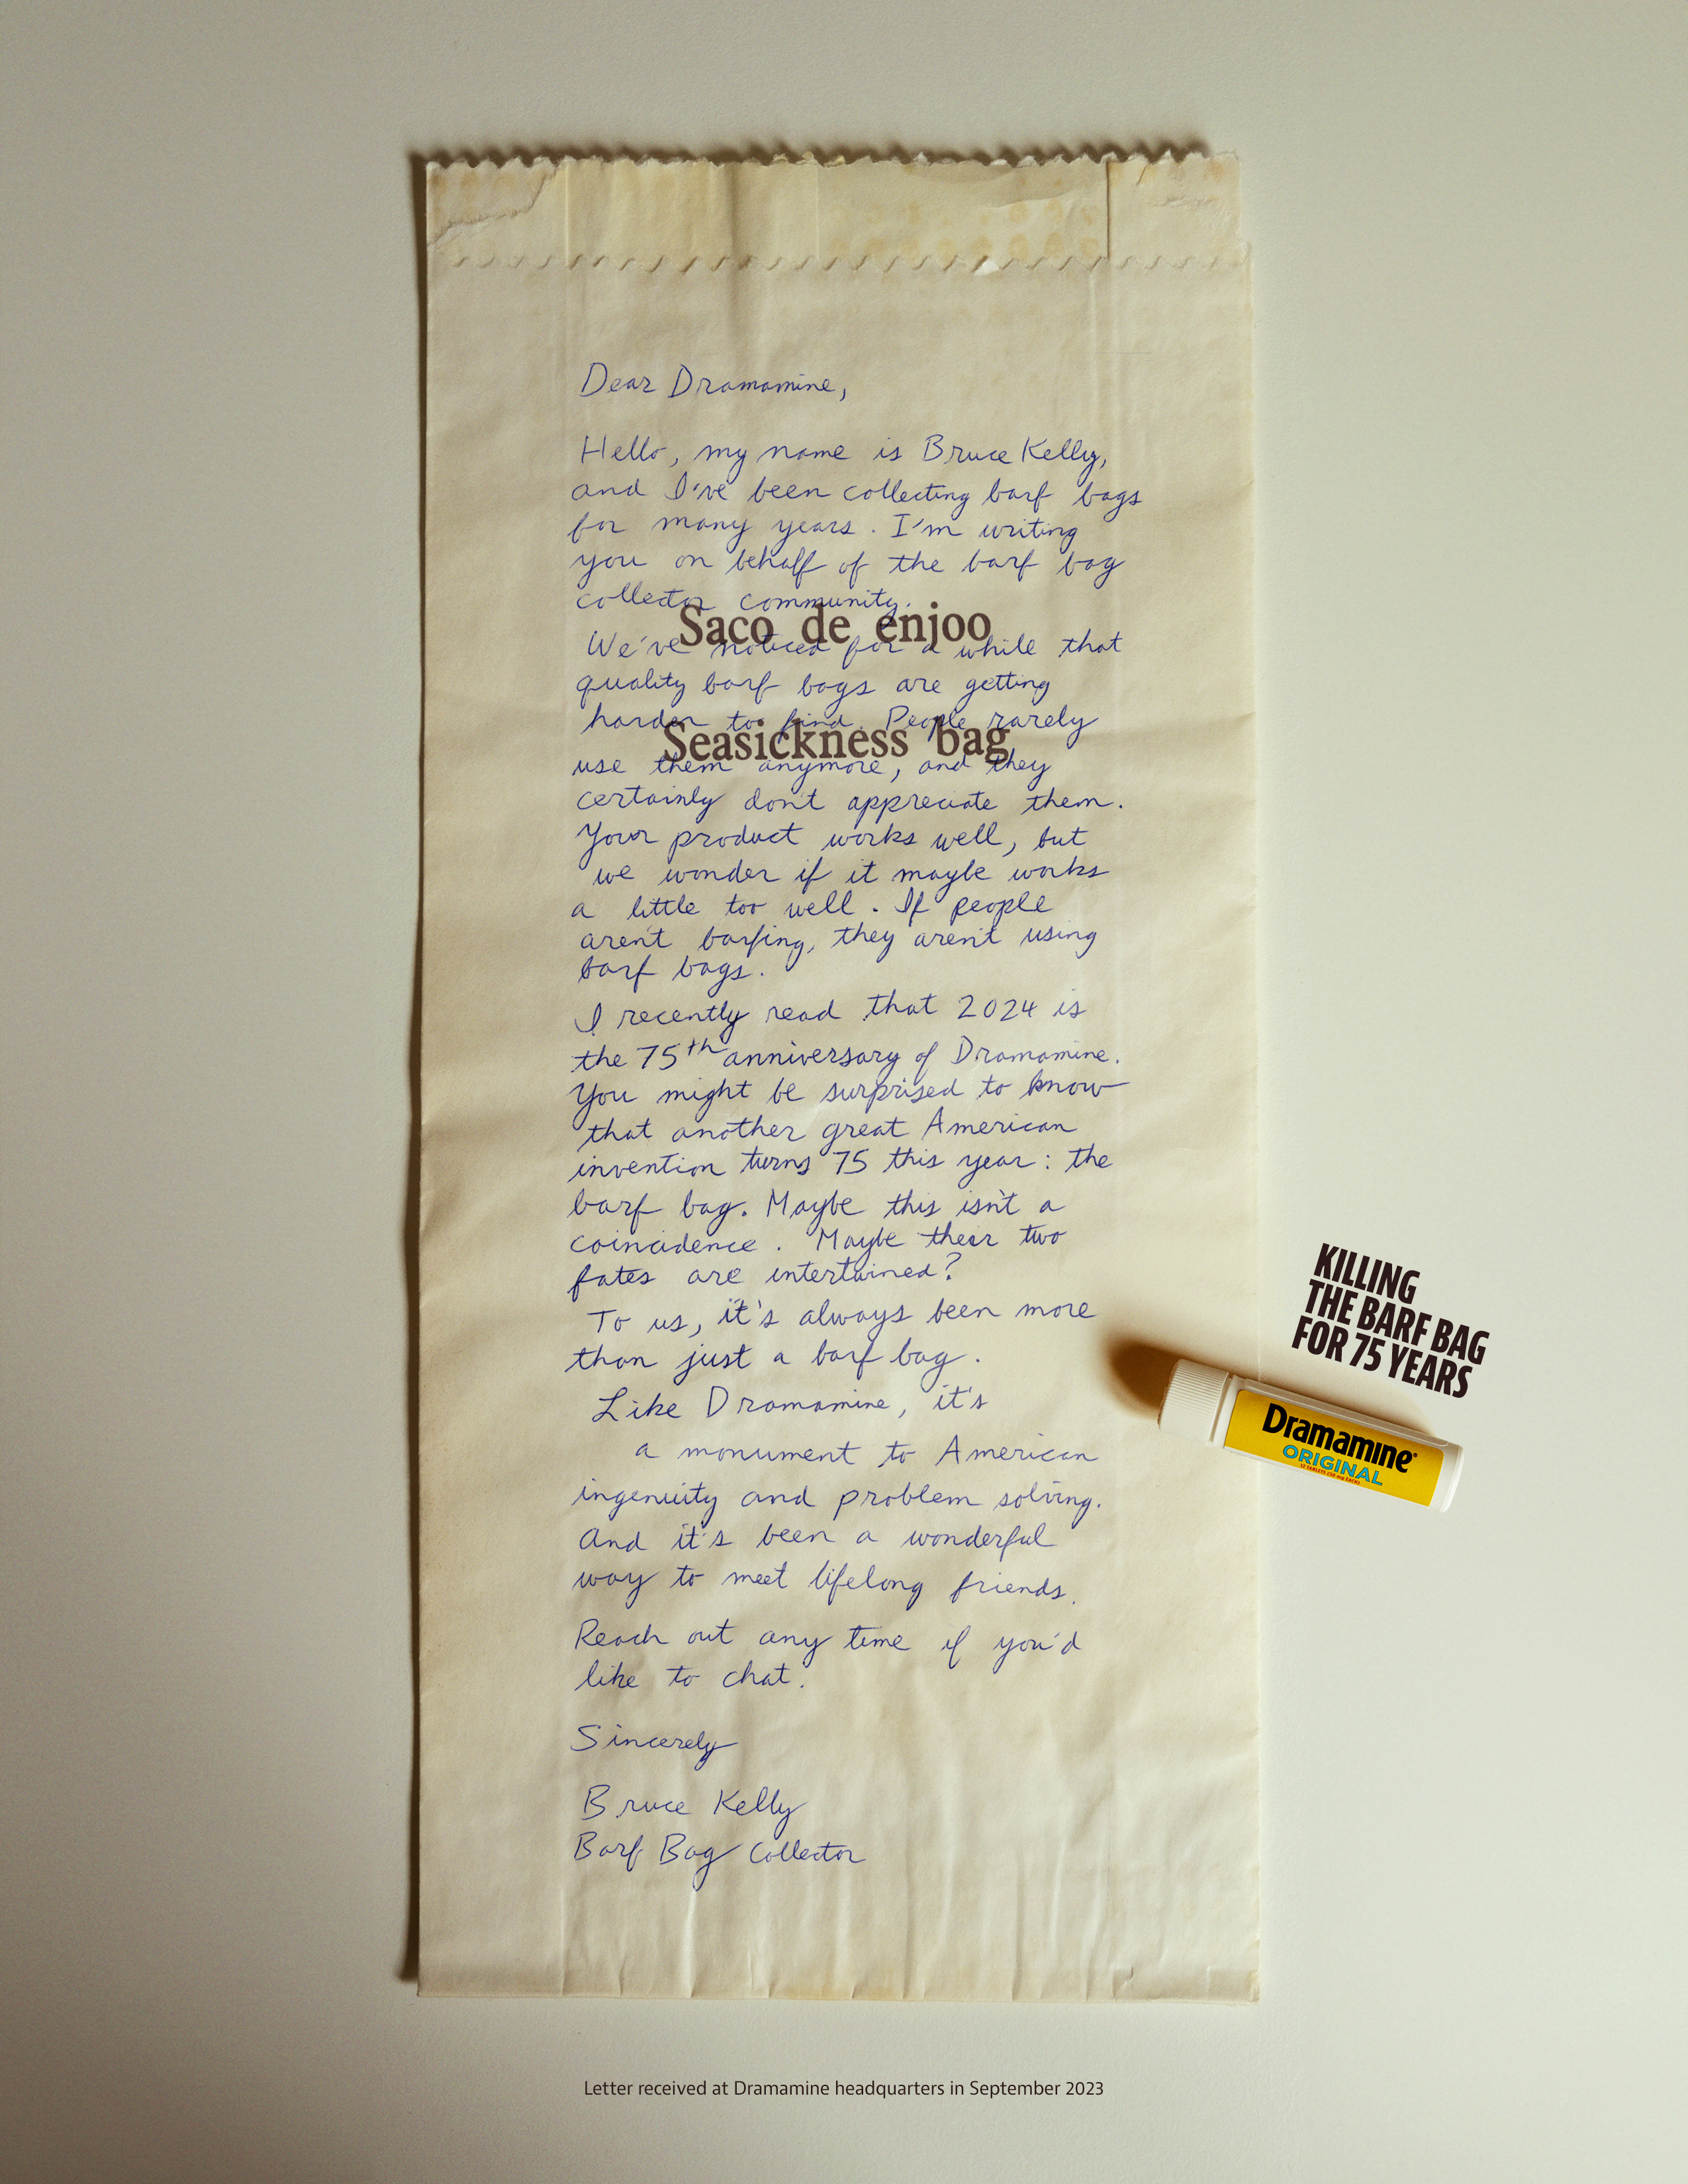 Dear Dramamine,
Hello, my name is Bruce Kelly,
and I've been collecting barf bags
for many years. I'm writing
you on behalf of the barf bag
collector community.
Saco de enjoo
We've noticed for a while that
quality barf bags are getting
harder to find. People rarely
Seasickness bag
use them anymore, and they
certainly don't appreciate them.
Your product works well, but
we wonder if it maybe works
a little too well. If people
aren't barfing, they aren't using
barf bags.
I recently read that 2024 is
the 75th anniversary of Dramamine.
You might be surprised to know
that another great American
invention turns 75 this year: the
barf bag. Maybe this isn't a
coincidence. Maybe their two
fates are intertwined?
To us, it's always been more
than just a barf bag.
Like Dramamine, it's
a monument to American
ingenuity and problem solving.
And it's been a wonderful
way to meet lifelong friends.
Reach out any time if you'd
like to chat.
Sincerely
Bruce Kelly
Barf Bag Collector
KILLING
THE BARF BAG
FOR 75 YEARS
Dramamine®
ORIGINAL
Letter received at Dramamine headquarters in September 2023